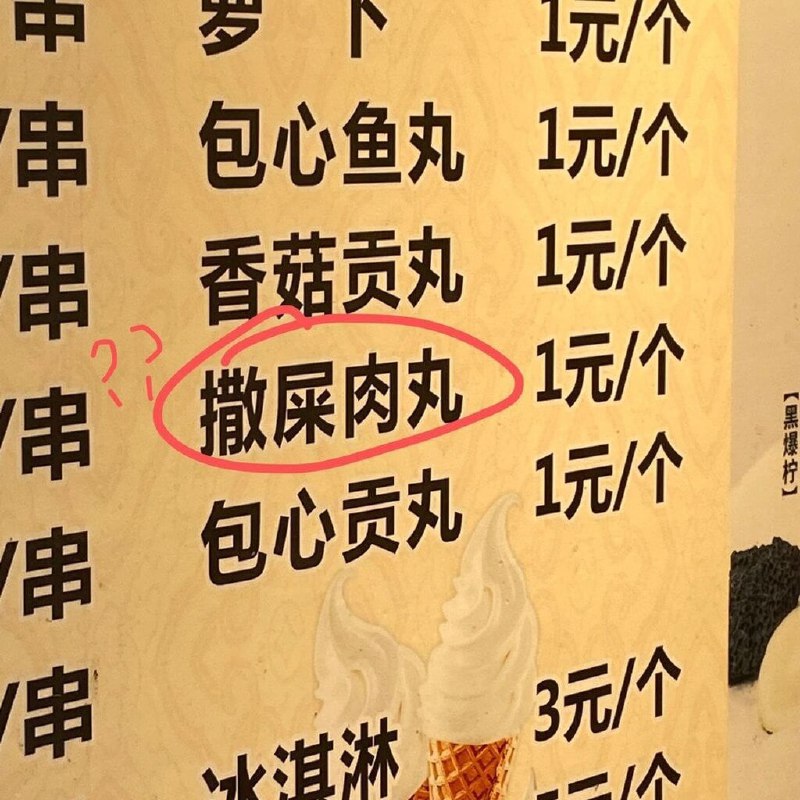 串 萝卜 1元/个
/串 包心鱼丸 1元/个
/串 香菇贡丸 1元/个
?? /串 撒屎肉丸 1元/个
/串 包心贡丸 1元/个
/串 3元/个
冰淇淋
元/个
【黑爆柠】